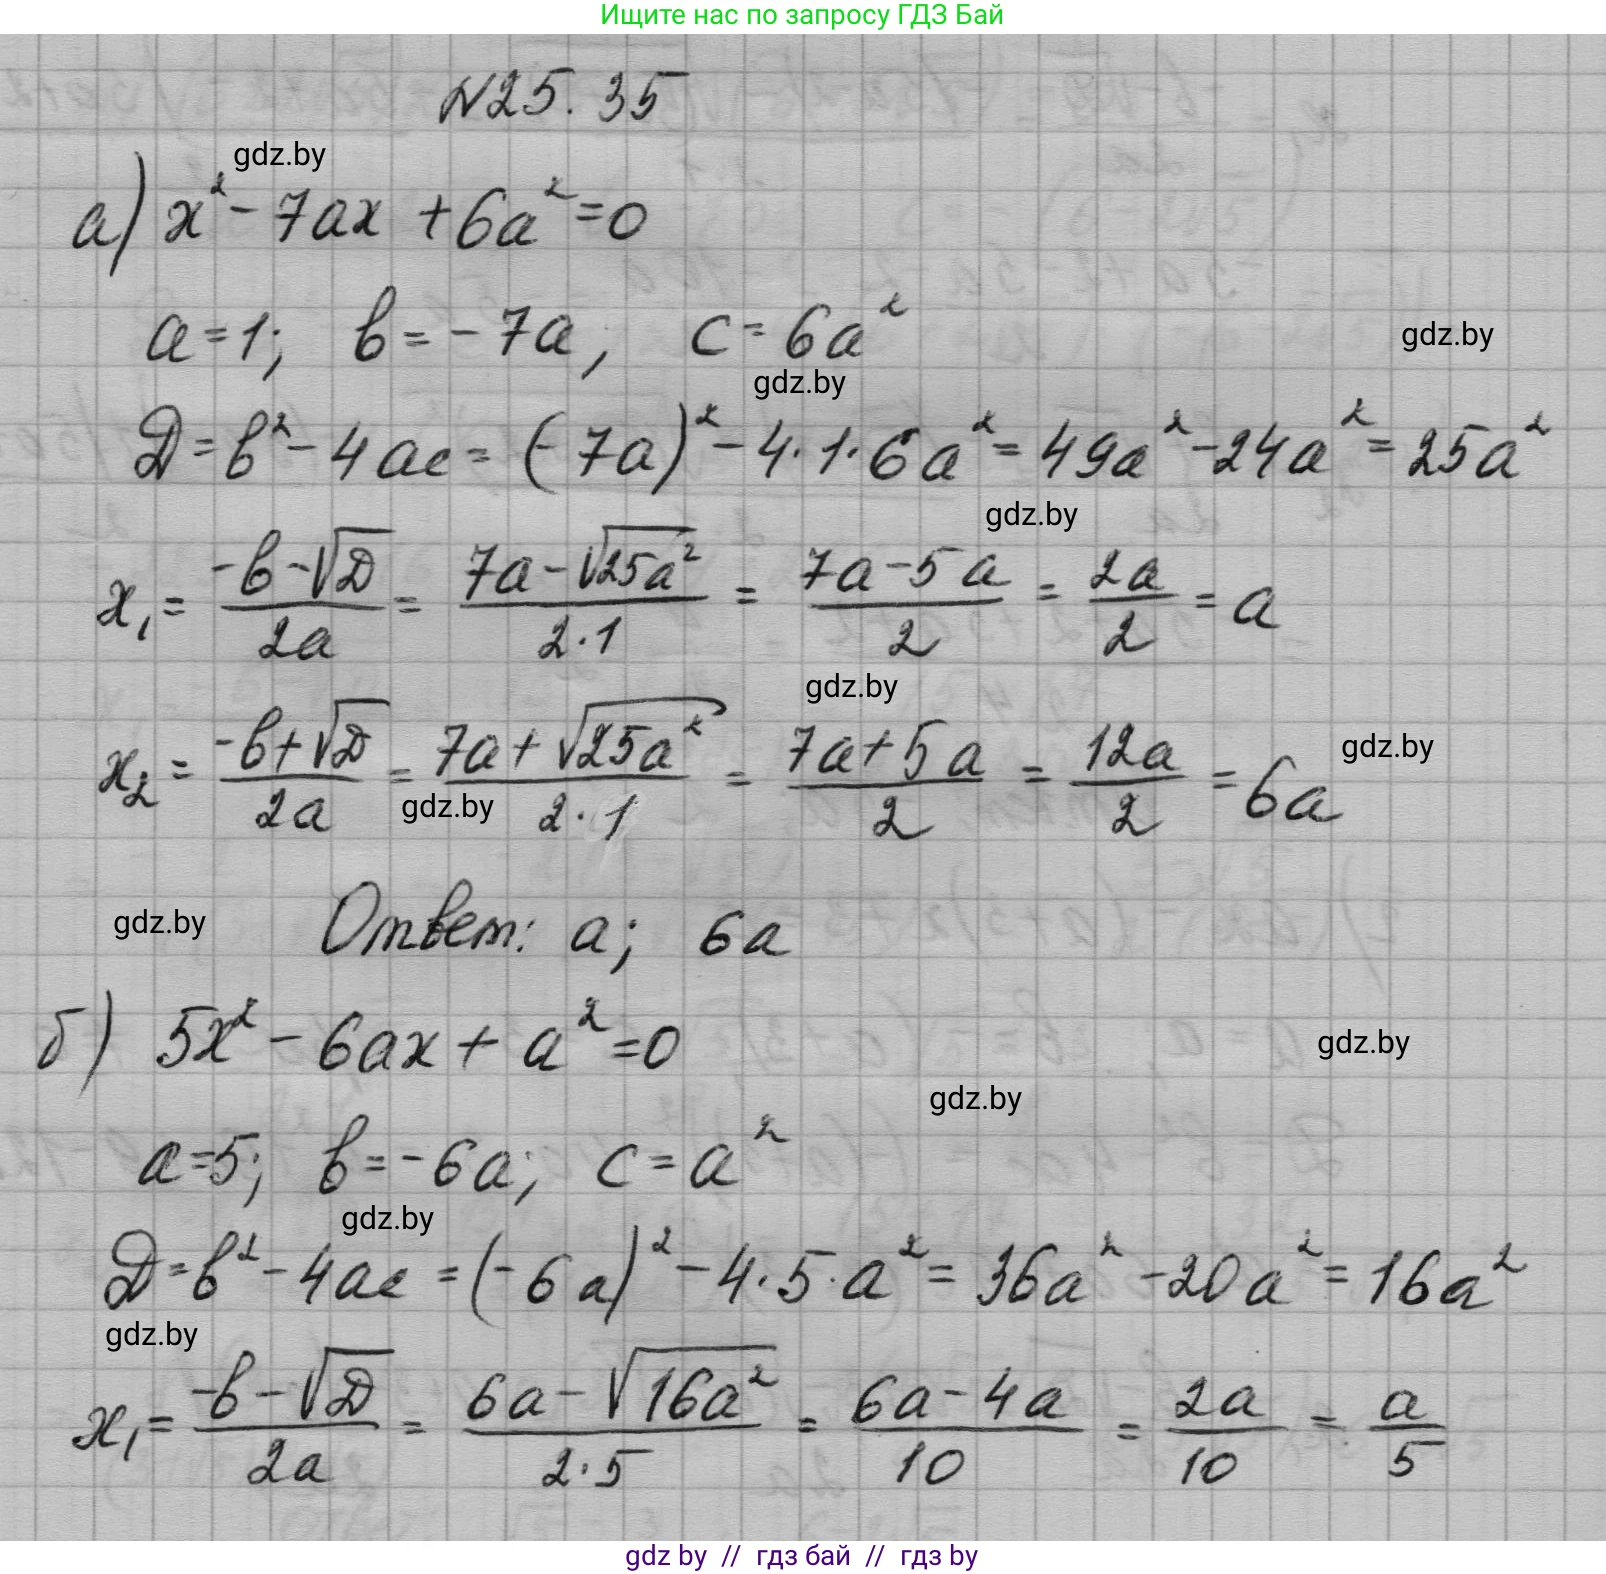 Ищите нас по запросу ГДЗ Бай
N25.35
gdz.by
а) x² - 7ax + 6a² = 0
a = 1; b = -7a; c = 6a²
gdz.by
gdz.by
D = b² - 4ac = (-7a)² - 4·1·6a² = 49a² - 24a² = 25a²
gdz.by
x₁ = (-b - √D)/2a = (7a - √25a²)/2·1 = (7a - 5a)/2 = 2a/2 = a
gdz.by
gdz.by
x₂ = (-b + √D)/2a = (7a + √25a²)/2·1 = (7a + 5a)/2 = 12a/2 = 6a
gdz.by
gdz.by
Ответ: a; 6a
б) 5x² - 6ax + a² = 0
gdz.by
gdz.by
a = 5; b = -6a; c = a²
gdz.by
D = b² - 4ac = (-6a)² - 4·5·a² = 36a² - 20a² = 16a²
gdz.by
x₁ = (-b - √D)/2a = (6a - √16a²)/2·5 = (6a - 4a)/10 = 2a/10 = a/5
gdz by // гдз бай // гдз by